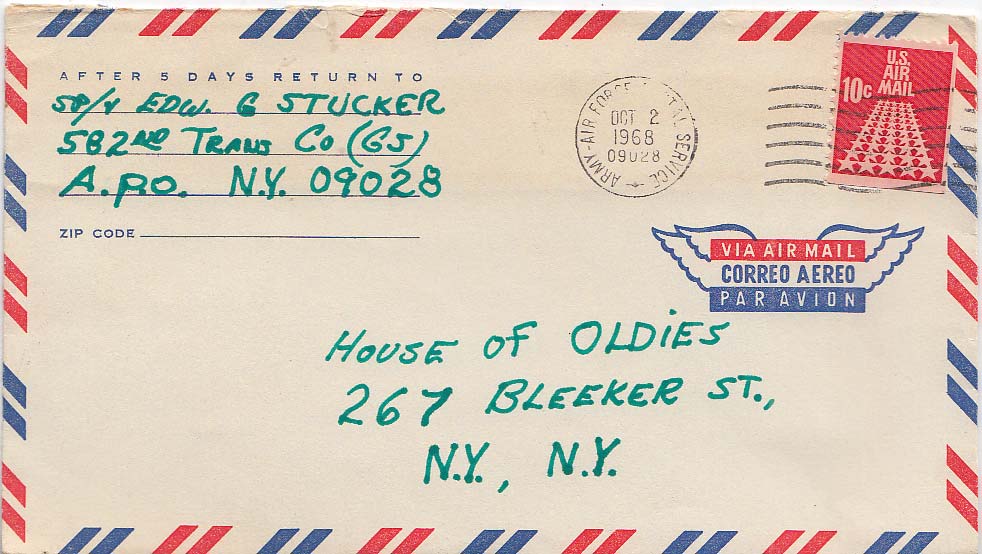 AFTER 5 DAYS RETURN TO
SP/4 EDW. G STUCKER
582ND TRANS CO (GS)
A.P.O. N.Y. 09028
ZIP CODE
ARMY-AIR FORCE POSTAL SERVICE
OCT 2
1968
09028
U.S.
AIR
MAIL
10c
VIA AIR MAIL
CORREO AEREO
PAR AVION
HOUSE OF OLDIES
267 BLEEKER ST.,
N.Y., N.Y.